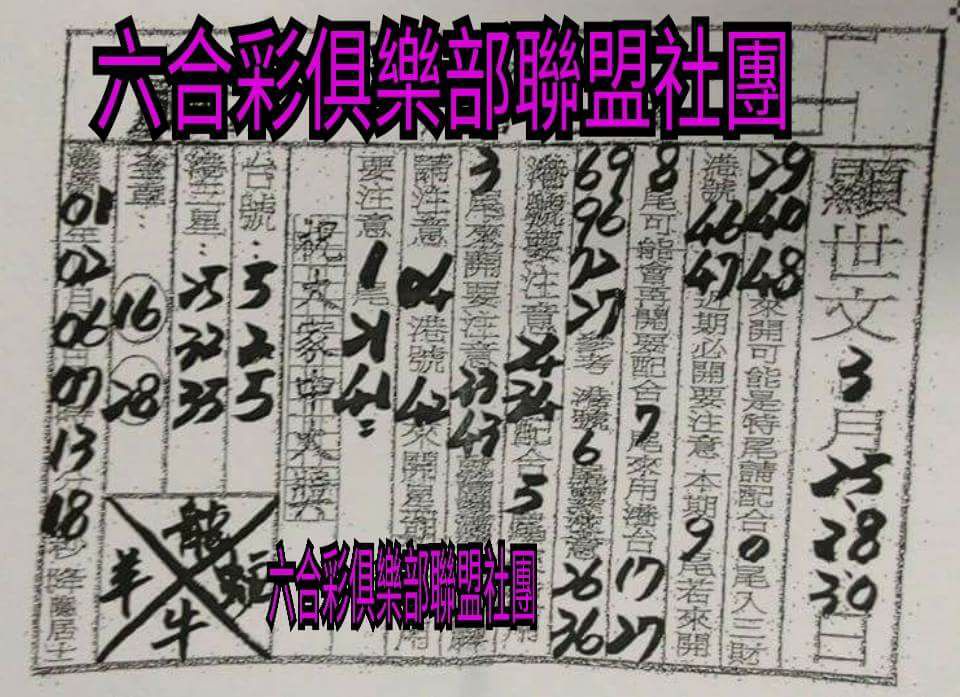 六合彩俱樂部聯盟社團
顯世文 3月25、28 30日
39 40 48 來開可能是特尾請配合 0 尾入三財
港號 46 47 近期必開要注意 本期 9 尾若來開
8 尾可能會再開要配合 7 尾來用港台 17 27
69 96 72 27 參考 港號 6 26 36
港號要注意 24 34 配合 5 尾
3 尾來開要注意 33 43
請注意 04 港號 42 來開
要注意 1 尾 21 41
祝大家中大獎
台號: 5 2 5
港三星: 25 32 35
16 28
01 年 02 月 06 日 07 時 13 分 18 秒 降
龍 蛇 牛 羊
六合彩俱樂部聯盟社團